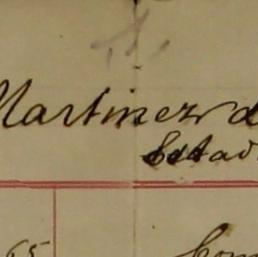 Martinez d
Estad
65
Com